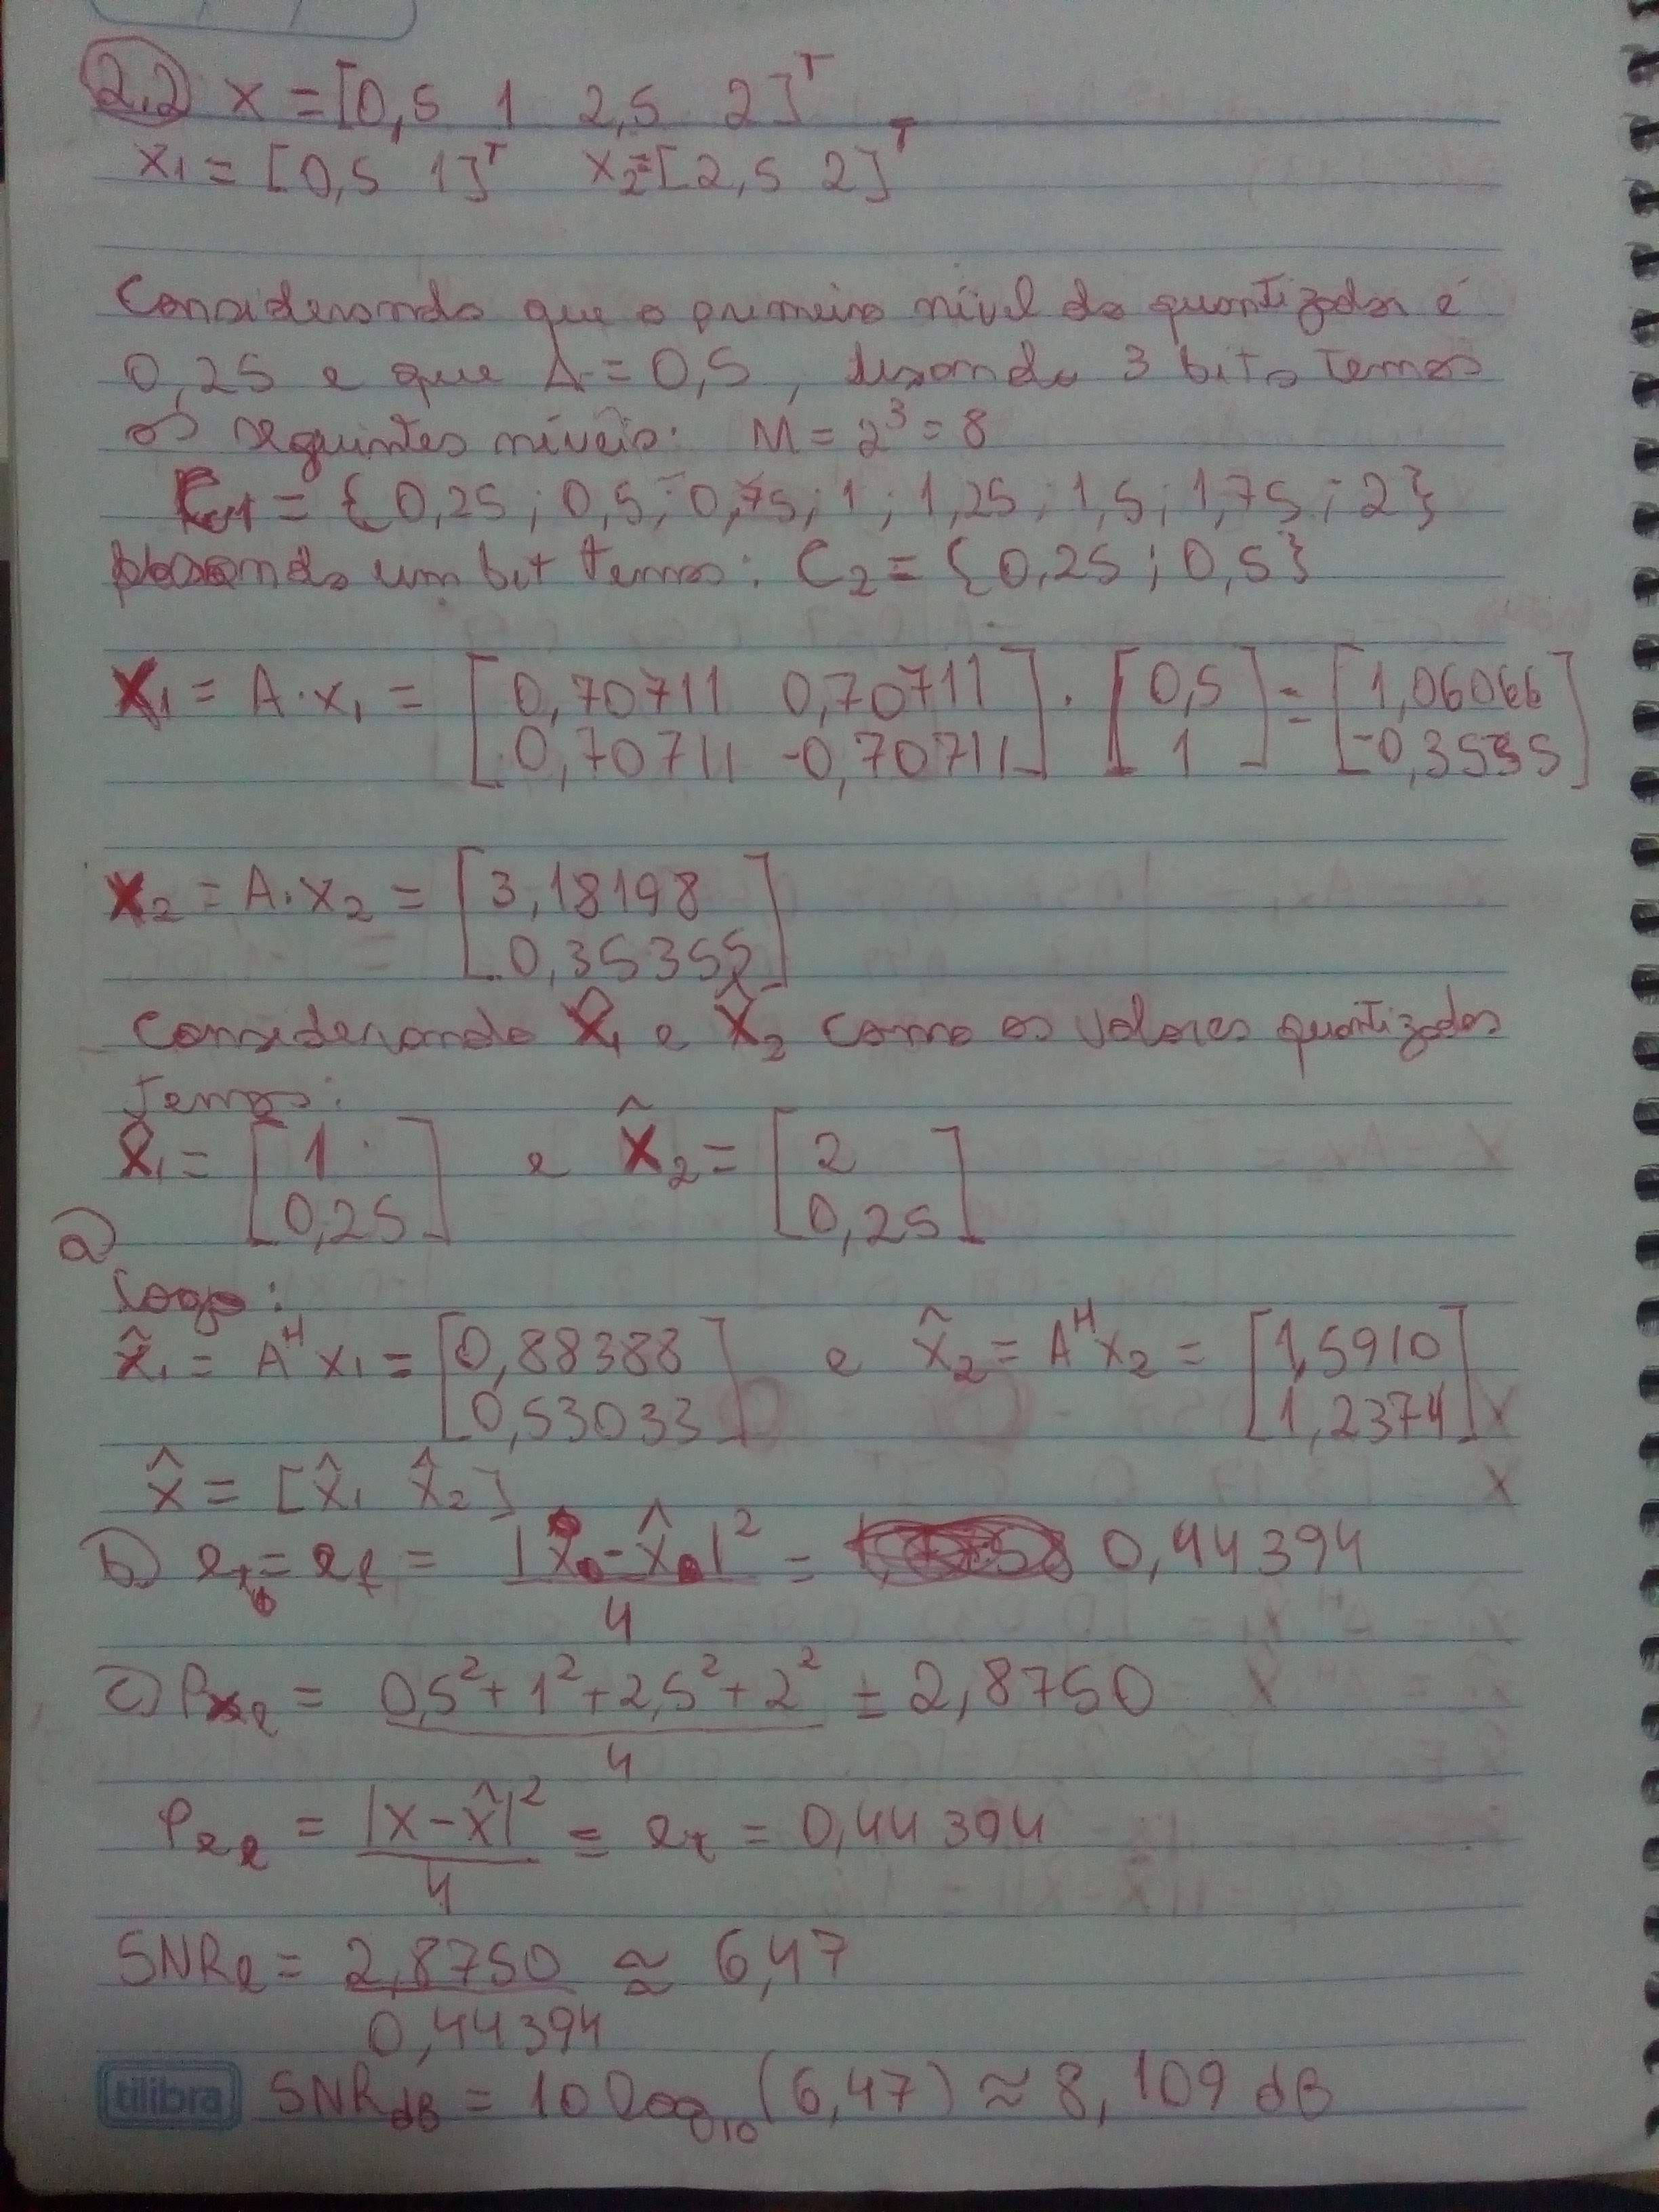 2.2 x = [0,5 1 2,5 2]ᵀ
x₁ = [0,5 1]ᵀ x₂ = [2,5 2]ᵀ
Considerando que o primeiro nível do quantizador é
0,25 e que Δ = 0,5, usando 3 bits temos
os seguintes níveis: M = 2³ = 8
C₁ = {0,25 ; 0,5 ; 0,75 ; 1 ; 1,25 ; 1,5 ; 1,75 ; 2}
um bit temos: C₂ = {0,25 ; 0,5}
X₁ = A · x₁ = [0,70711 0,70711 ; 0,70711 -0,70711] · [0,5 ; 1] = [1,06066 ; -0,3535]
X₂ = A · x₂ = [3,18198 ; 0,35355]
Considerando X̂₁ e X̂₂ como os valores quantizados
temos:
X̂₁ = [1 ; 0,25] e X̂₂ = [2 ; 0,25]
a)
logo:
x̂₁ = Aᴴ x₁ = [0,88388 ; 0,53033] e x̂₂ = Aᴴ x₂ = [1,5910 ; 1,2374]
x̂ = [x̂₁ x̂₂]
b) = |x - x̂|² / 4 = 0,44394
c) Pₓ₂ = (0,5² + 1² + 2,5² + 2²) / 4 = 2,8750
Pₑ₂ = |x - x̂|² / 4 = = 0,44394
SNR₂ = 2,8750 / 0,44394 ≈ 6,47
tilibra SNR dB = 10 log₁₀ (6,47) ≈ 8,109 dB